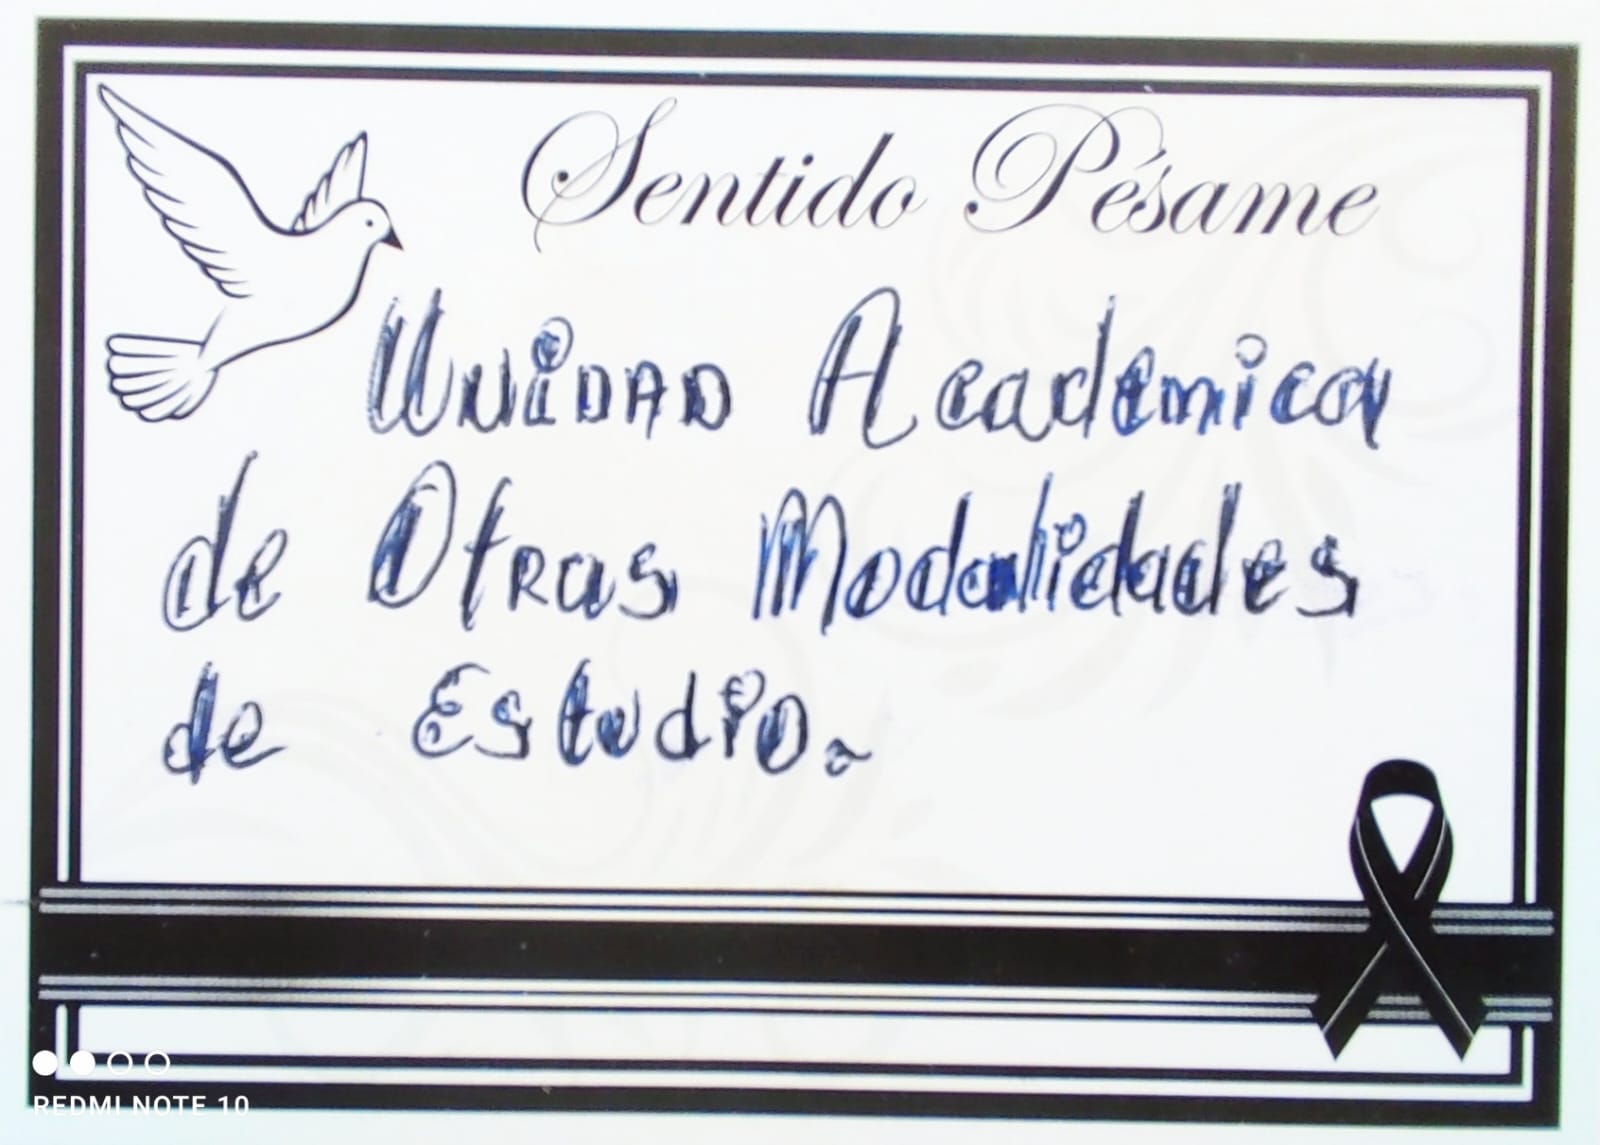 Sentido Pésame
Unidad Academica
de Otras Modalidades
de Estudio.
REDMI NOTE 10